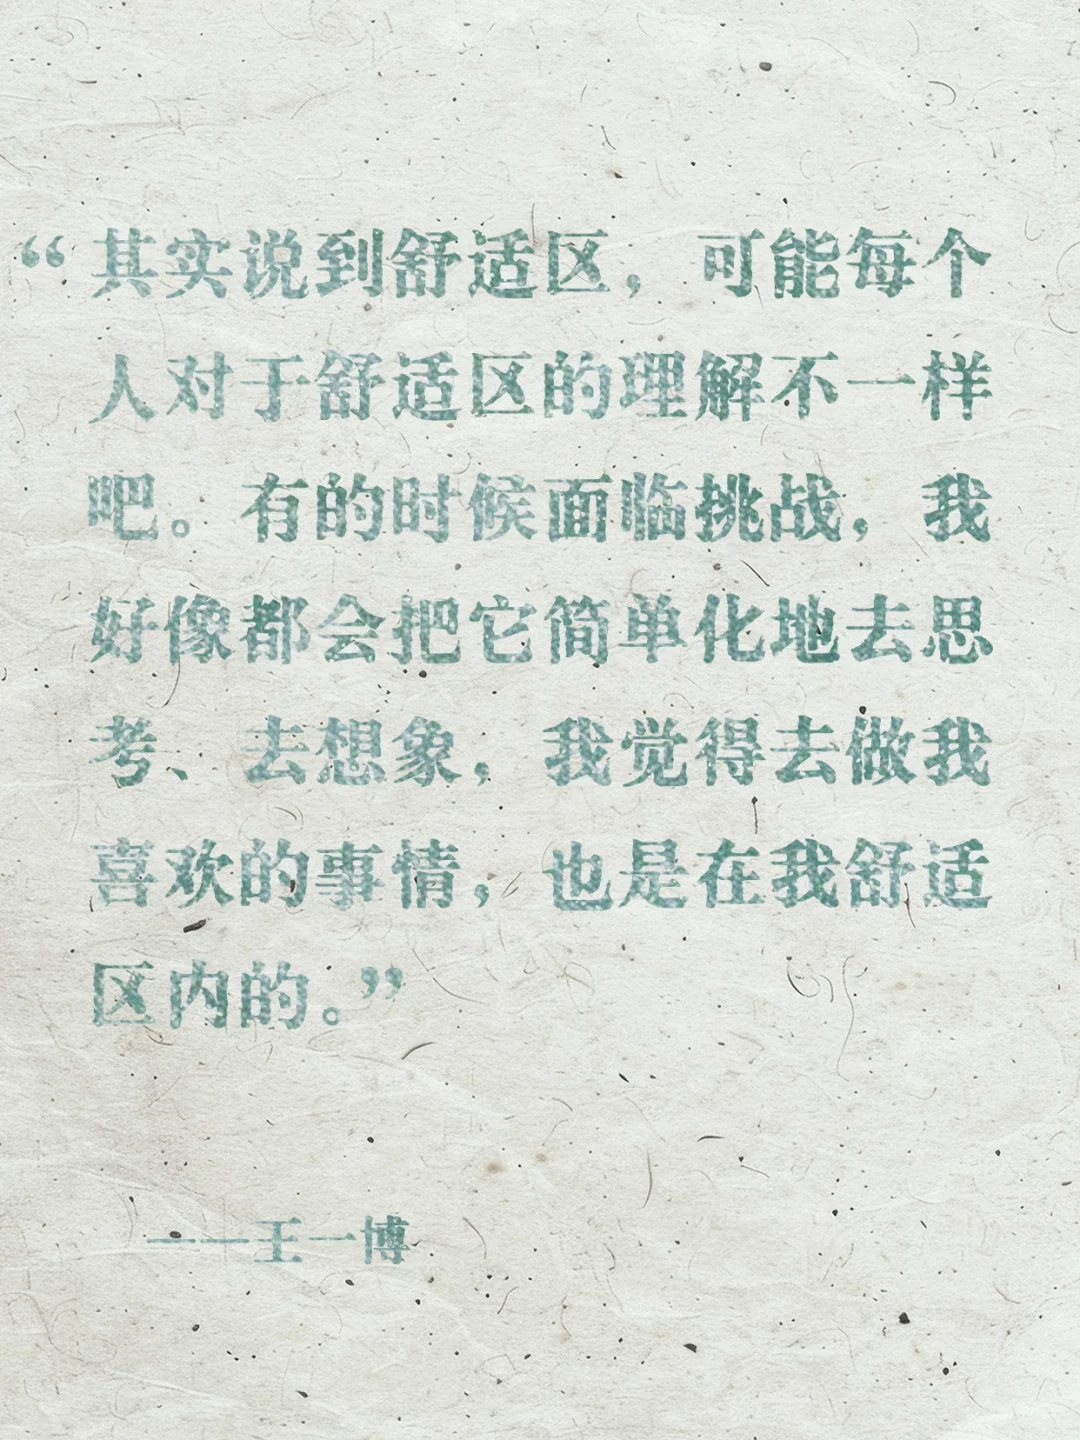 “其实说到舒适区，可能每个
人对于舒适区的理解不一样
吧。有的时候面临挑战，我
好像都会把它简单化地去思
考、去想象，我觉得去做我
喜欢的事情，也是在我舒适
区内的。”
——王一博